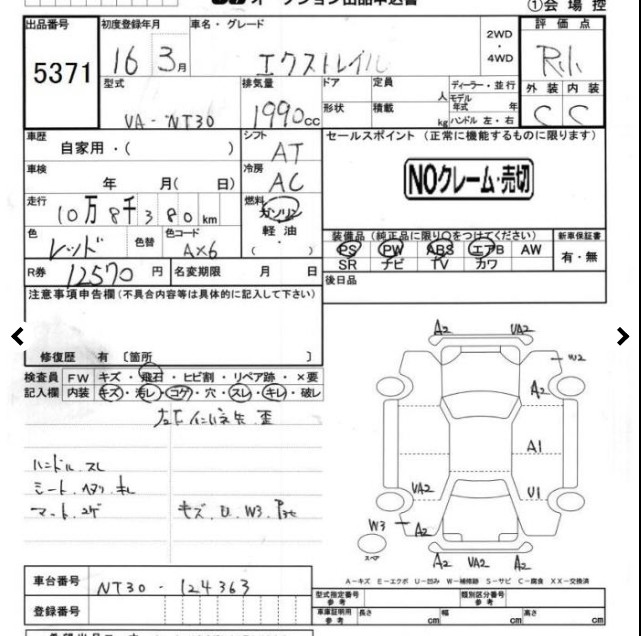 オークション出品申込書
①会場控
出品番号 初度登録年月 車名・グレード 2WD・4WD 評価点
5371 16 3月 エクストレイル
型式 排気量 ドア 定員 人 ディーラー・並行 外装 内装
VA-NT30 1990cc 形状 積載 kg モデル年式 年 ハンドル 左・右 C C
車歴 シフト セールスポイント (正常に機能するものに限ります)
自家用・( ) AT
車検 冷房 NOクレーム・売切
年 月( 日) AC
走行 燃料
10万8千380km ガソリン
軽油・( )
色 色替 色コード 装備品 (純正品に限り○をつけてください) 新車保証書
レッド AX6 PS PW ABS エアB AW 有・無
SR ナビ TV カワ
R券 12570円 名変期限 月 日 後日品
注意事項申告欄(不具合内容等は具体的に記入して下さい)
修復歴 有 〔箇所 〕
検査員 FW キズ・飛石・ヒビ割・リペア跡・×要
記入欄 内装 キズ・汚レ・コゲ・穴・スレ・キレ・破レ
ハンドル スレ
マット コゲ
キズ U W3
A2 VA2
W2
A2
A1
VA2 U1
W3 A2
スペア
A2 VA2 A2
A-キズ E-エクボ U-凹み W-補修跡 S-サビ C-腐食 XX-交換済
車台番号 NT30-124363
型式指定番号 参考 類別区分番号 参考
登録番号
車庫証明用 参考 長さ cm 幅 cm 高さ cm